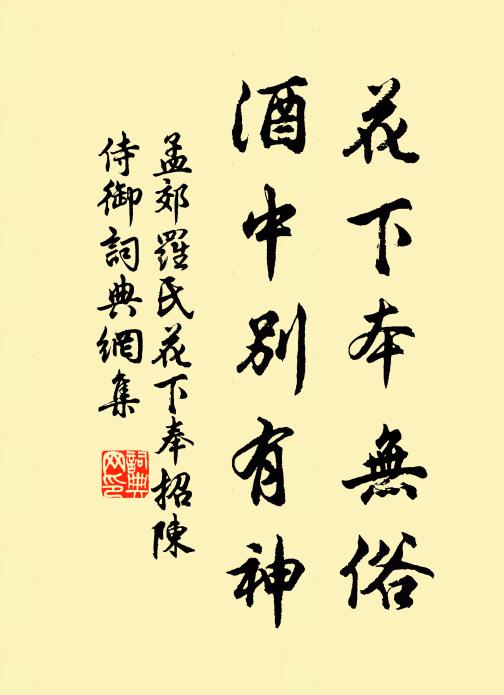 花下本無俗
酒中別有神
孟郊羅氏花下奉招陳
侍御詞典網集
詞典
网印